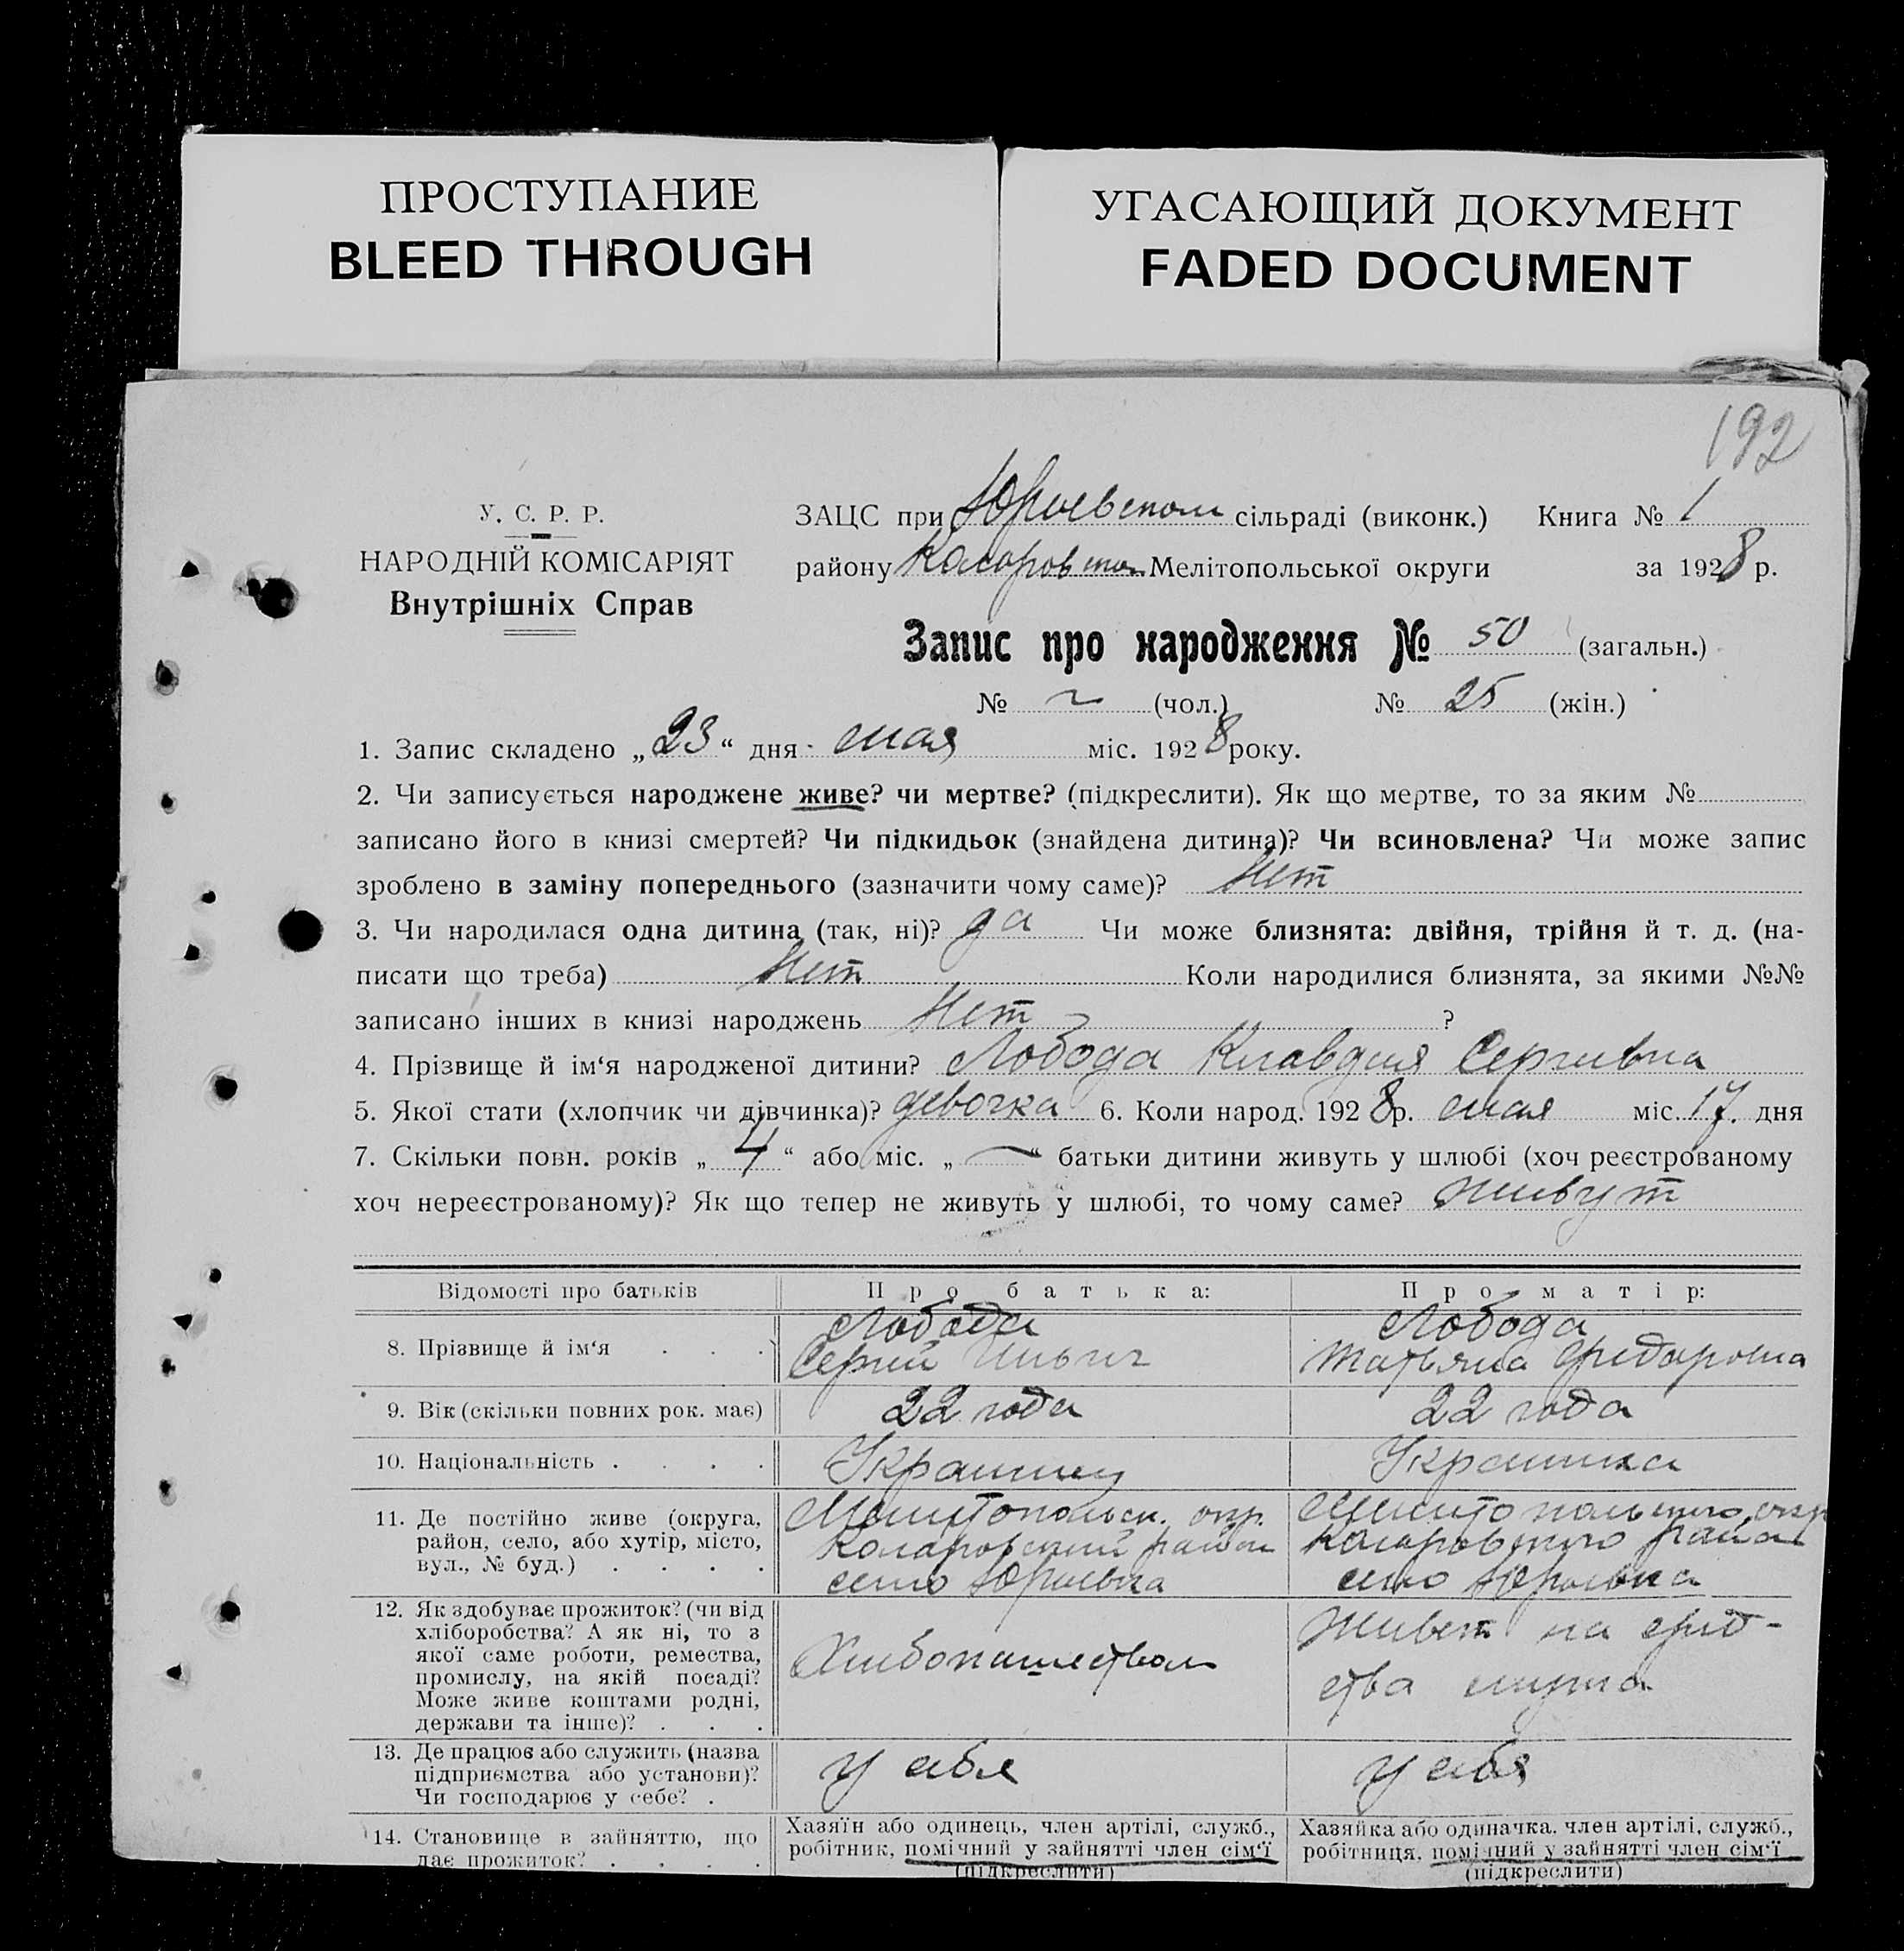 ПРОСТУПАНИЕ
BLEED THROUGH
УГАСАЮЩИЙ ДОКУМЕНТ
FADED DOCUMENT
192
У. С. Р. Р.
НАРОДНІЙ КОМІСАРІЯТ
Внутрішніх Справ
ЗАЦС при Юрьевском сільраді (виконк.) Книга № 1
району Коларовском Мелітопольської округи за 1928 р.
Запис про народження № 50 (загальн.)
№ ~ (чол.) № 25 (жін.)
1. Запис складено „23“ дня мая міс. 1928 року.
2. Чи записується народжене живе? чи мертве? (підкреслити). Як що мертве, то за яким №
записано його в книзі смертей? Чи підкидьок (знайдена дитина)? Чи всиновлена? Чи може запис
зроблено в заміну попереднього (зазначити чому саме)? Нет
3. Чи народилася одна дитина (так, ні)? да Чи може близнята: двійня, трійня й т. д. (на-
писати що треба) Нет Коли народилися близнята, за якими №№
записано інших в книзі народжень Нет ?
4. Прізвище й ім‘я народженої дитини? Лобода Клавдия Сергиевна
5. Якої стати (хлопчик чи дівчинка)? девочка 6. Коли народ. 1928 р. мая міс. 17. дня
7. Скільки повн. років „4“ або міс. „—“ батьки дитини живуть у шлюбі (хоч реєстрованому
хоч нереєстрованому)? Як що тепер не живуть у шлюбі, то чому саме? живут
Відомості про батьків
Про батька:
Про матір:
8. Прізвище й ім‘я . . .
Лобода
Сергий Ильич
Лобода
Татьяна
9. Вік (скільки повних рок. має)
22 года
22 года
10. Національність . . . .
Украинец
Украинка
11. Де постійно живе (округа,
район, село, або хутір, місто,
вул., № буд.) . . . .
Мелитопольск. окр.
Коларовский район
село Юрьевка
Мелитопольского окр
Коларовского район
село Юрьевка
12. Як здобуває прожиток? (чи від
хліборобства? А як ні, то з
якої саме роботи, ремества,
промислу, на якій посаді?
Може живе коштами родні,
держави та інше)? . . .
Хлибопашеством
Живет на сред-
ства мужа
13. Де працює або служить (назва
підприємства або установи)?
Чи господарює у себе? .
У себя
У себя
14. Становище в зайняттю, що
дає прожиток? . . . .
Хазяїн або одинець, член артілі, служб.,
робітник, помічний у зайнятті член сім‘ї
(підкреслити)
Хазяйка або одиначка, член артілі, служб.,
робітниця, помічний у зайнятті член сім‘ї
(підкреслити)